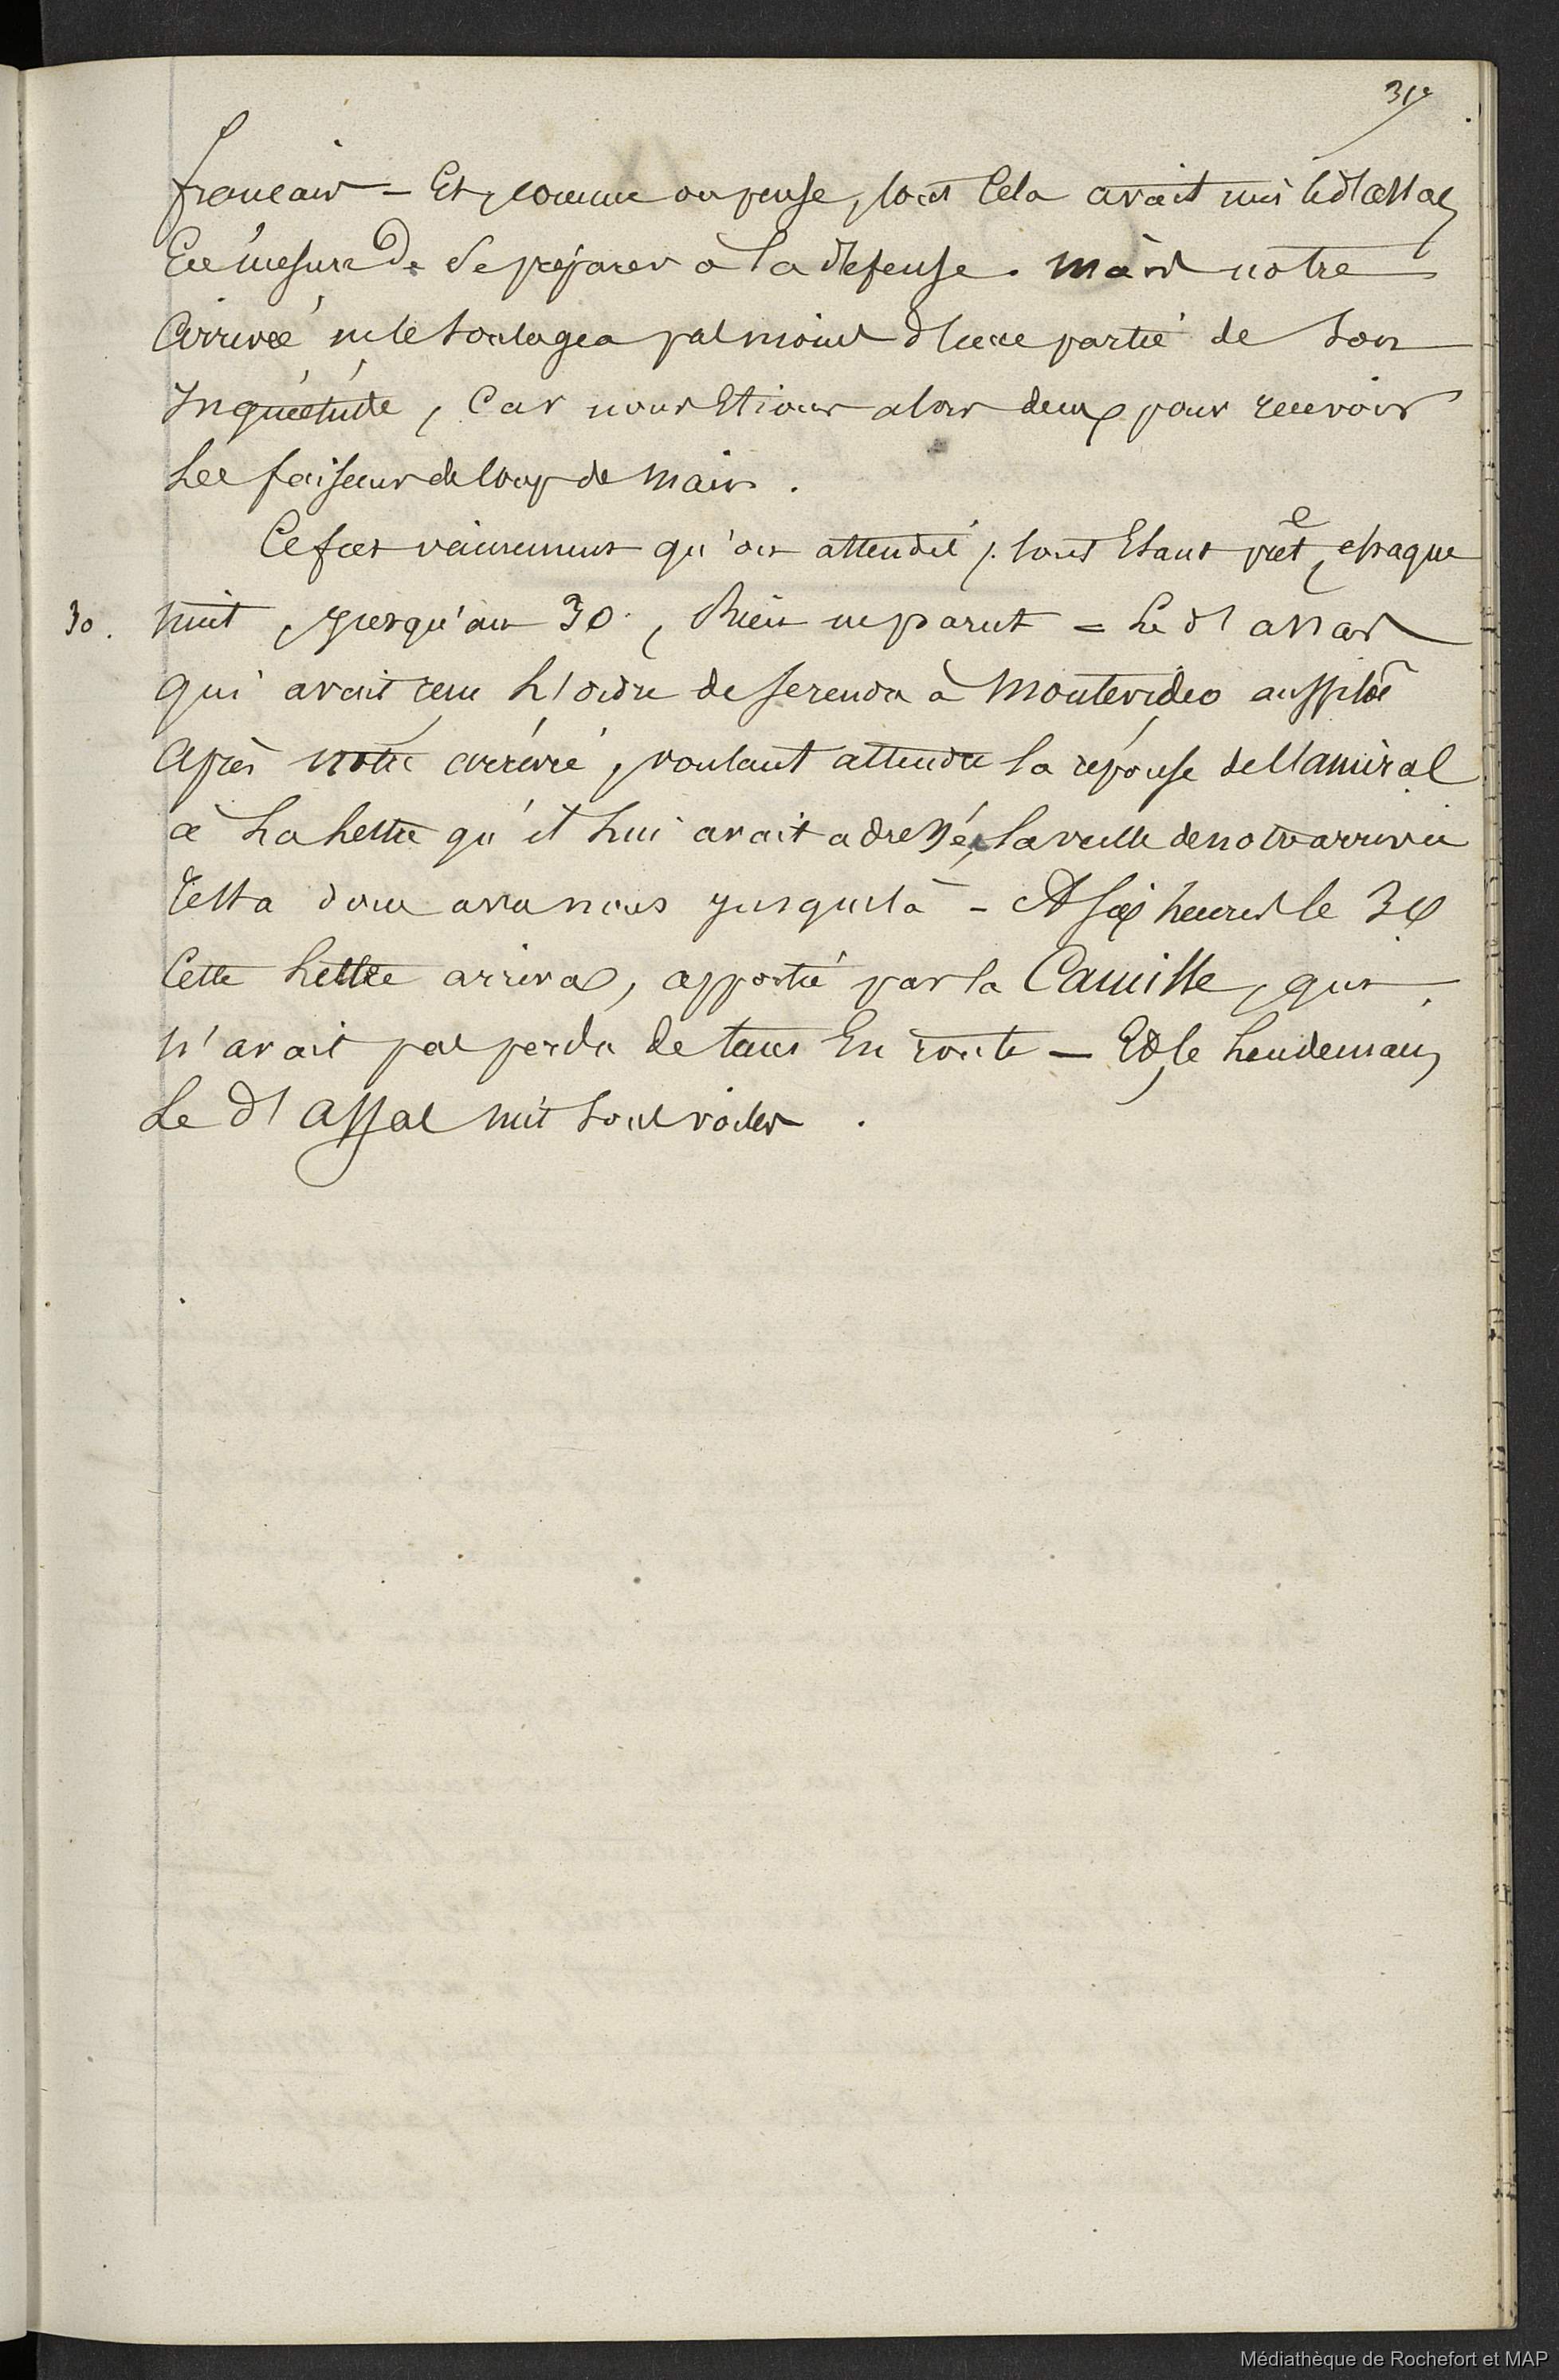 31e
français - Et, comme on pense, tout cela avait mis le d'assas
En mesure de se préparer à la défense. Mais notre
arrivée ne le soulagea pas moins d'une partie de son
Inquiétude, Car nous Etions alors deux pour recevoir
Les faiseurs de coup de main.
Ce fut vainement qu'on attendit, tout Etant prêt, chaque
30. nuit, jusqu'au 30, Rien ne parut = Le d'assas
qui avait reçu L'ordre de se rendre à Montevideo aussitôt
après notre arrivée, voulant attendre la réponse de l'amiral
à La lettre qu'il Lui avait adressé, la veille de notre arrivée
resta donc avec nous jusque là - A six heures le 30
Cette Lettre arriva, apporté par la Camille, qui
n'avait pas perdu de tems En route — Et, le Lendemain,
Le d'assas mit sous voiles.
Médiathèque de Rochefort et MAP